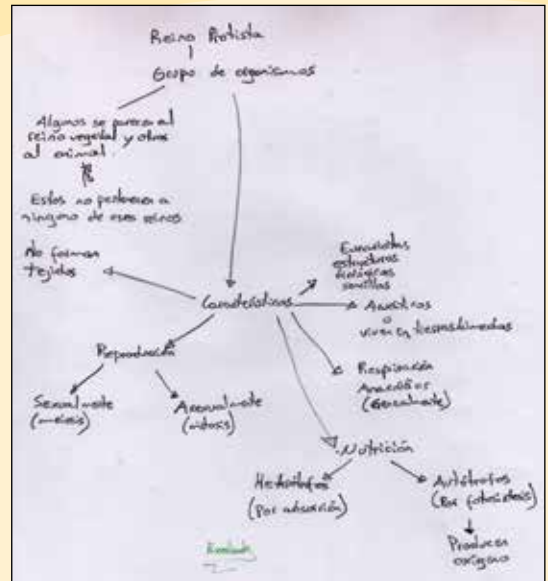 Reino Protista
Grupo de organismos
Algunos se parecen al
reino vegetal y otros
al animal.
Estos no pertenecen a
ninguno de esos reinos
No forman
tejidos
Eucariotas
estructuras
biológicas
sencillas
Características
Acuáticos
o
viven en tierras húmedas
Reproducción
Respiración
(Generalmente)
Sexualmente
(meiosis)
Asexualmente
(mitosis)
Nutrición
Heterótrofos
(Por absorción)
Autótrofos
(Por fotosíntesis)
Producen
oxígeno